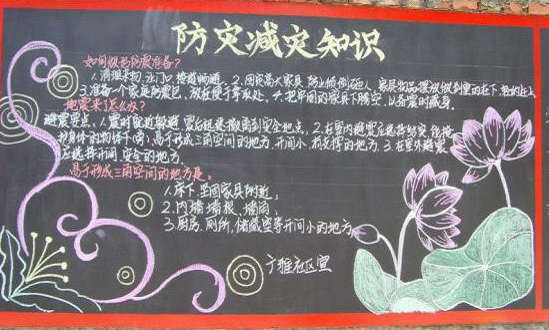 防灾减灾知识
如何做好防震准备?
1.清理杂物,让门口、楼道畅通。2.固定高大家具,防止倾倒砸人,家具物品摆放做到重的在下,轻的在上
3.准备一个家庭防震包,放在便于拿取处。4.把牢固的家具下腾空,以备震时藏身。
地震来了怎么办?
避震要点:1.震时就近躲避,震后迅速撤离到安全地点。2.在室内避震应选择结实、能掩
护身体的物体下(旁)、易于形成三角空间的地方,开间小、有支撑的地方。3.在室外避震
应选择开阔、安全的地方。
易于形成三角空间的地方是:
1.床下、坚固家具附近;
2.内墙墙根、墙角;
3.厨房、厕所、储藏室等开间小的地方。
社区宣